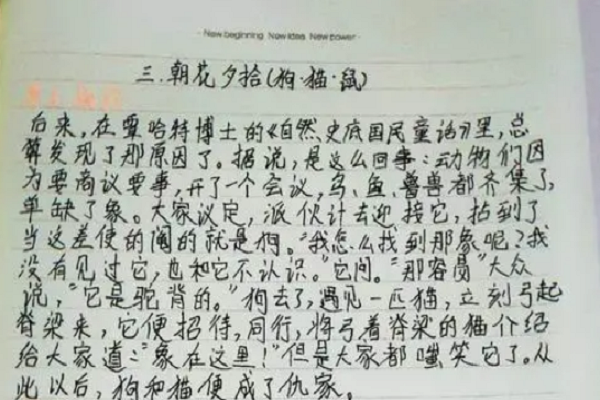 New beginning New idea New power
三.朝花夕拾(狗·猫·鼠)
后来,在覃哈特博士的《自然史底国民童话》里,总
算发现了那原因了。据说,是这么回事:动物们因
为要商议要事,开了一个会议,鸟、鱼、兽都齐集了,
单缺了象。大家议定,派伙计去迎接它,拈到了
当这差使的阄的就是狗。"我怎么找到那象呢?我
没有见过它,也和它不认识。"它问。"那容易"大众
说,"它是驼背的。"狗去了,遇见一匹猫,立刻弓起
脊梁来,它便招待,同行,将弓着脊梁的猫介绍
给大家道:"象在这里!"但是大家都嗤笑它了。从
此以后,狗和猫便成了仇家。